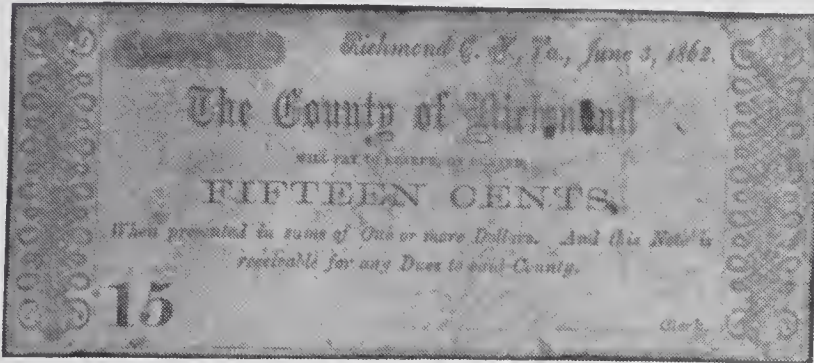 Richmond C. H., Va., June 3, 1862.
The County of Richmond
WILL PAY TO BEARER, OR
FIFTEEN CENTS,
When presented in sums of One or more Dollars. And this Note is
receivable for any Dues to said County.
15
Clerk.